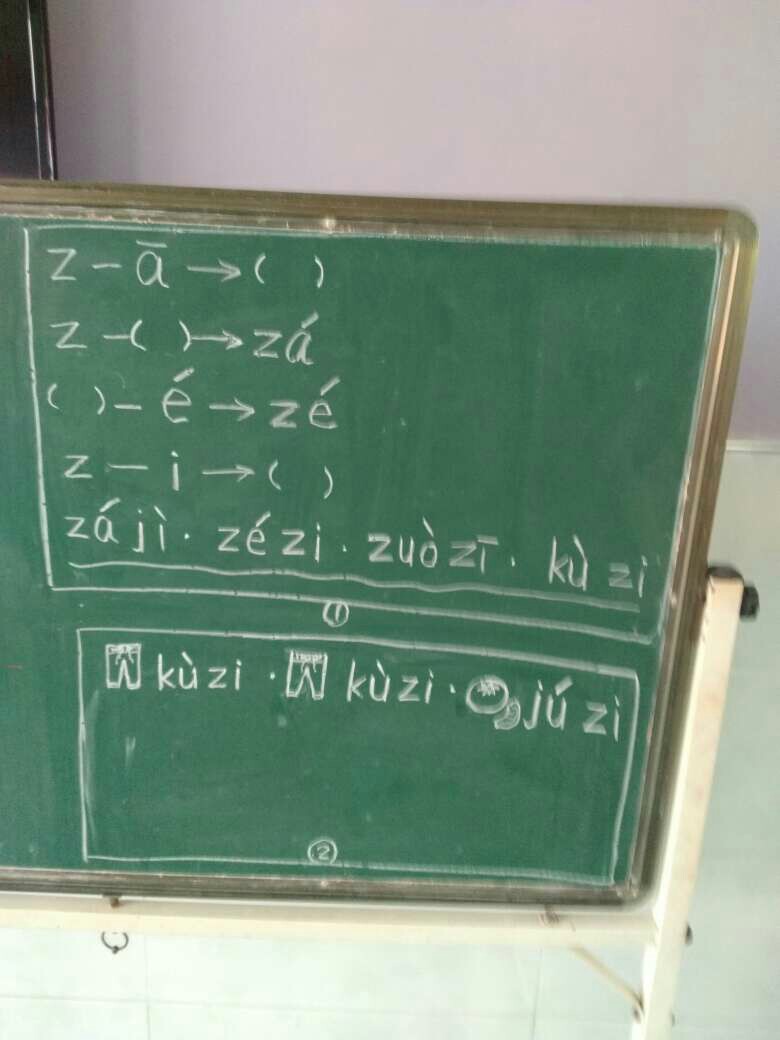 z – ā → ( )
z – ( ) → zá
( ) – é → zé
z – i → ( )
zájì · zézi · zuòzī · kùzi
①
kùzi · kùzi · júzi
②